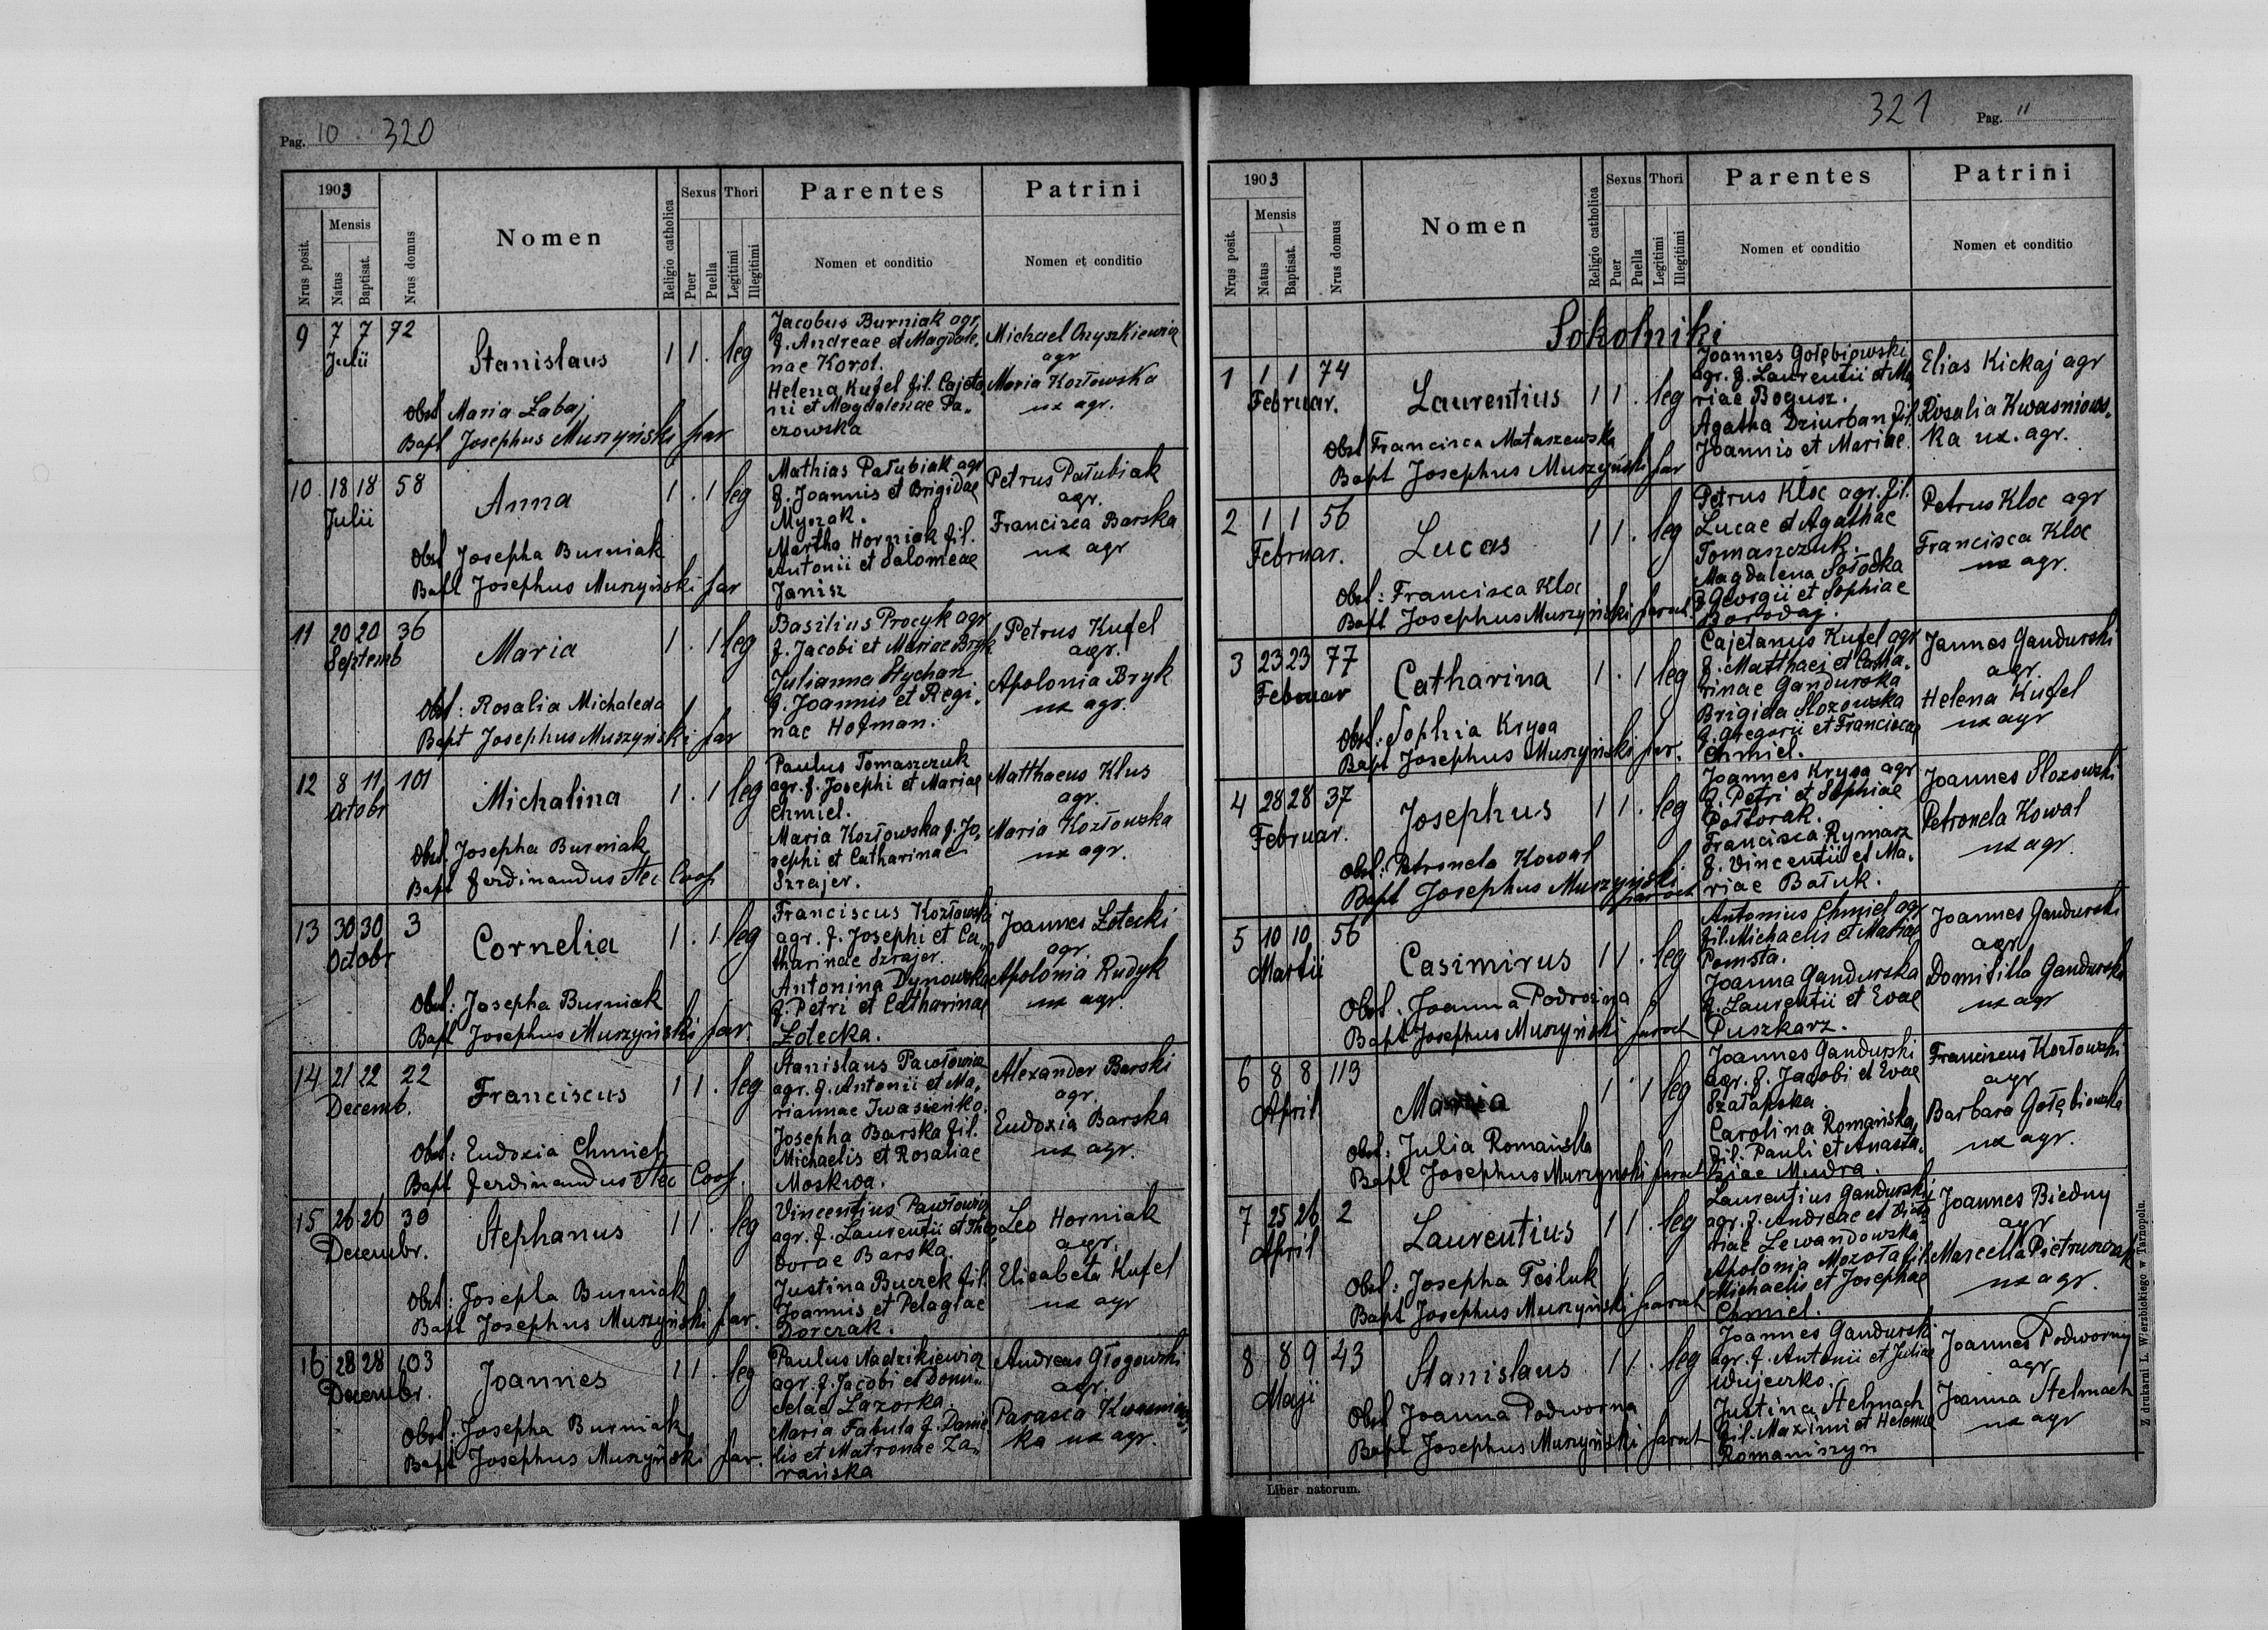 Pag. 10 320
1903
Mensis
Nrus posit.
Natus
Baptisat.
Nrus domus
Nomen
Religio catholica
Sexus
Puer
Puella
Thori
Legitimi
Illegitimi
Parentes
Nomen et conditio
Patrini
Nomen et conditio
9 7 7 72
Julii
Stanislaus 1 1 . leg
Obst Maria Łabaj
Bapt Josephus Muszyński par
Jacobus Burniak agr
f. Andreae et Magdale,
nae Korol.
Helena Kufel fil. Cajeta,
ni et Magdalenae Pa,
czowska
Michael Onyszkiewicz
agr
Maria Kozłowska
ux agr.
10 18 18 58
Julii
Anna 1 . 1 leg
Obst Josepha Burniak
Bapt Josephus Muszyński par
Mathias Pałubiak agr
f. Joannis et Brigidae
Myszak.
Martha Horniak fil.
Antonii et Salomeae
Janisz
Petrus Pałubiak
agr.
Francisca Barska
ux agr
11 20 20 36
Septemb
Maria 1 . 1 leg
Obst: Rosalia Michaleda
Bapt Josephus Muszyński par
Basilius Procyk agr
f. Jacobi et Mariae Bryk
Julianna Stychan
f. Joannis et Regi,
nae Hofman.
Petrus Kufel
agr.
Apolonia Bryk
ux agr.
12 8 11 101
Octobr
Michalina 1 . 1 leg
Obst. Josepha Burniak
Bapt Ferdinandus Coop
Paulus Tomaszczuk
agr. f. Josephi et Mariae
Chmiel.
Maria Kozłowska f. Jo,
sephi et Catharinae
Szrajer.
Matthaeus Klus
agr.
Maria Kozłowska
ux agr.
13 30 30 3
Octobr
Cornelia 1 . 1 leg
Obst: Josepha Burniak
Bapt Josephus Muszyński par.
Franciscus Kozłowski
agr. f. Josephi et Ca,
tharinae Szrajer.
Antonina Dynowska
f. Petri et Catharinae
Żołecka.
Joannes Żołecki
agr.
Apolonia Rudyk
ux agr
14 21 22 22
Decemb.
Franciscus 1 1 . leg
Obst: Eudoxia Chmiel
Bapt Ferdinandus Coop.
Stanislaus Pawłowicz
agr. f. Antonii et Ma,
riannae Iwasieńko.
Josepha Barska fil.
Michaelis et Rosaliae
Moskwa.
Alexander Barski
agr.
Eudoxia Barska
ux agr.
15 26 26 30
Decembr.
Stephanus 1 1 . leg
Obst: Josepha Burniak
Bapt Josephus Muszyński par.
Vincentius Pawłowicz
agr. f. Laurentii et Theo
dorae Barska.
Justina Buczek fil.
Joannis et Pelagiae
Dorczak.
Leo Horniak
agr.
Elisabeta Kufel
ux agr
16 28 28 103
Decembr.
Joannes 1 1 . leg
Obst: Josepha Burniak
Bapt Josephus Muszyński par.
Paulus Nadzikiewicz
agr. f. Jacobi et Domi,
celae Lazorka.
Maria Fabuła f. Danie
lis et Matronae Za,
rańska
Andreas Głogowski
agr.
Parasca Kwasniow,
ka ux agr.
321 Pag. 11
1903
Mensis
Nrus posit.
Natus
Baptisat.
Nrus domus
Nomen
Religio catholica
Sexus
Puer
Puella
Thori
Legitimi
Illegitimi
Parentes
Nomen et conditio
Patrini
Nomen et conditio
Sokolniki
1 1 1 74
Februar.
Laurentius 1 1 . leg
Obst Francisca Mataszewska
Bapt Josephus Muszyński par
Joannes Gołębiowski
agr. f. Laurentii et Ma
riae Bogusz.
Agatha Dziurban fil.
Joannis et Mariae.
Elias Kickaj agr
Rosalia Kwasniows,
ka ux. agr.
2 1 1 56
Februar.
Lucas 1 1 . leg
Obst: Francisca Kloc
Bapt Josephus Muszyński paroch
Petrus Kloc agr. fil.
Lucae et Agathae
Tomaszczuk.
Magdalena Sołocka
f Georgii et Sophiae
Borodaj.
Petrus Kloc agr
Francisca Kloc
ux agr.
3 23 23 77
Februar
Catharina 1 . 1 leg
Obst: Sophia Krysa
Bapt Josephus Muszyński par.
Cajetanus Kufel agr
f. Matthaei et Catha,
rinae Gandurska
Brigida Slozowska
f. Gregorii et Franciscae
Chmiel.
Jannes Gandurski
agr.
Helena Kufel
ux agr
4 28 28 37
Februar.
Josephus 1 1 . leg
Obst: Petronela Kowal
Bapt Josephus Muszyński
paroch
Joannes Krysa agr
f. Petri et Sophiae
Półtorak.
Francisca Rymarz
f. Vincentii et Ma,
riae Bałuk.
Joannes Slozowski
Petronela Kowal
ux agr.
5 10 10 56
Martii
Casimirus 1 1 . leg
Obst. Joanna Podrożna
Bapt Josephus Muszyński paroch
Antonius Chmiel agr
fil. Michaelis et Mariae
Pemsta.
Joanna Gandurska
f. Laurentii et Evae
Puszkarz.
Joannes Gandurski
agr
Domitilla Gandurska
ux agr
6 8 8 113
April
Maria 1 . 1 leg
Obst: Julia Romańska
Bapt Josephus Muszyński paroch
Joannes Gandurski
agr. f. Jacobi et Evae
Szałapska.
Carolina Romańska,
fil. Pauli et Anasta,
siae Mudra.
Franciscus Kozłowski
agr
Barbara Gołębiowska
ux agr.
7 25 26 2
April
Laurentius 1 1 . leg
Obst: Josepha Tesluk
Bapt Josephus Muszyński paroch
Laurentius Gandurski
agr. f. Andreae et Victo
riae Lewandowska
Apolonia Mozoła fil.
Michaelis et Josephae
Chmiel.
Joannes Biedny
agr
Marcella Pietruszczak
ux agr.
8 8 9 43
Maji
Stanislaus 1 1 . leg
Obst Joanna Podworna
Bapt Josephus Muszyński paroch
Joannes Gandurski
agr. f. Antonii et Juliae
Wujeczko.
Justina Stelmach
fil. Maximi et Helenae
Romaniszyn
Joannes Podworny
agr
Joanna Stelmach
ux agr
Liber natorum.
Z drukarni L. Wierzbickiego w Tarnopolu.